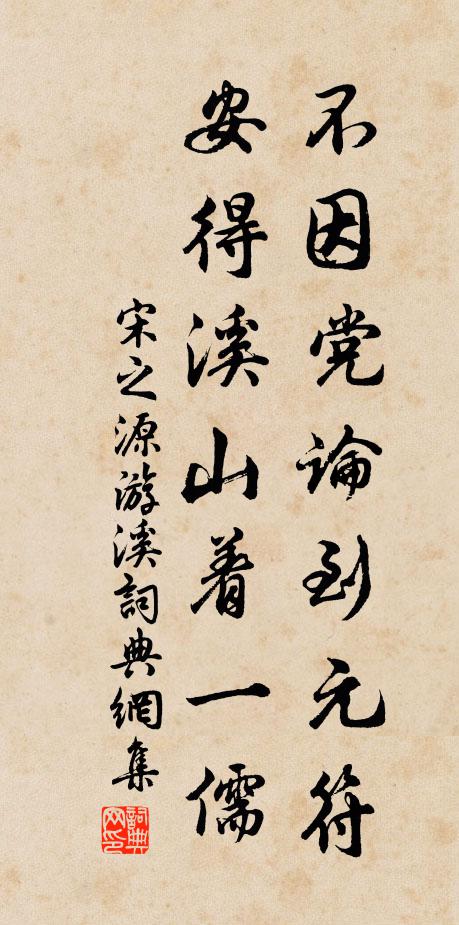 不因党論到元符
安得溪山着一儒
宋之源游溪詞典網集
詞典網印